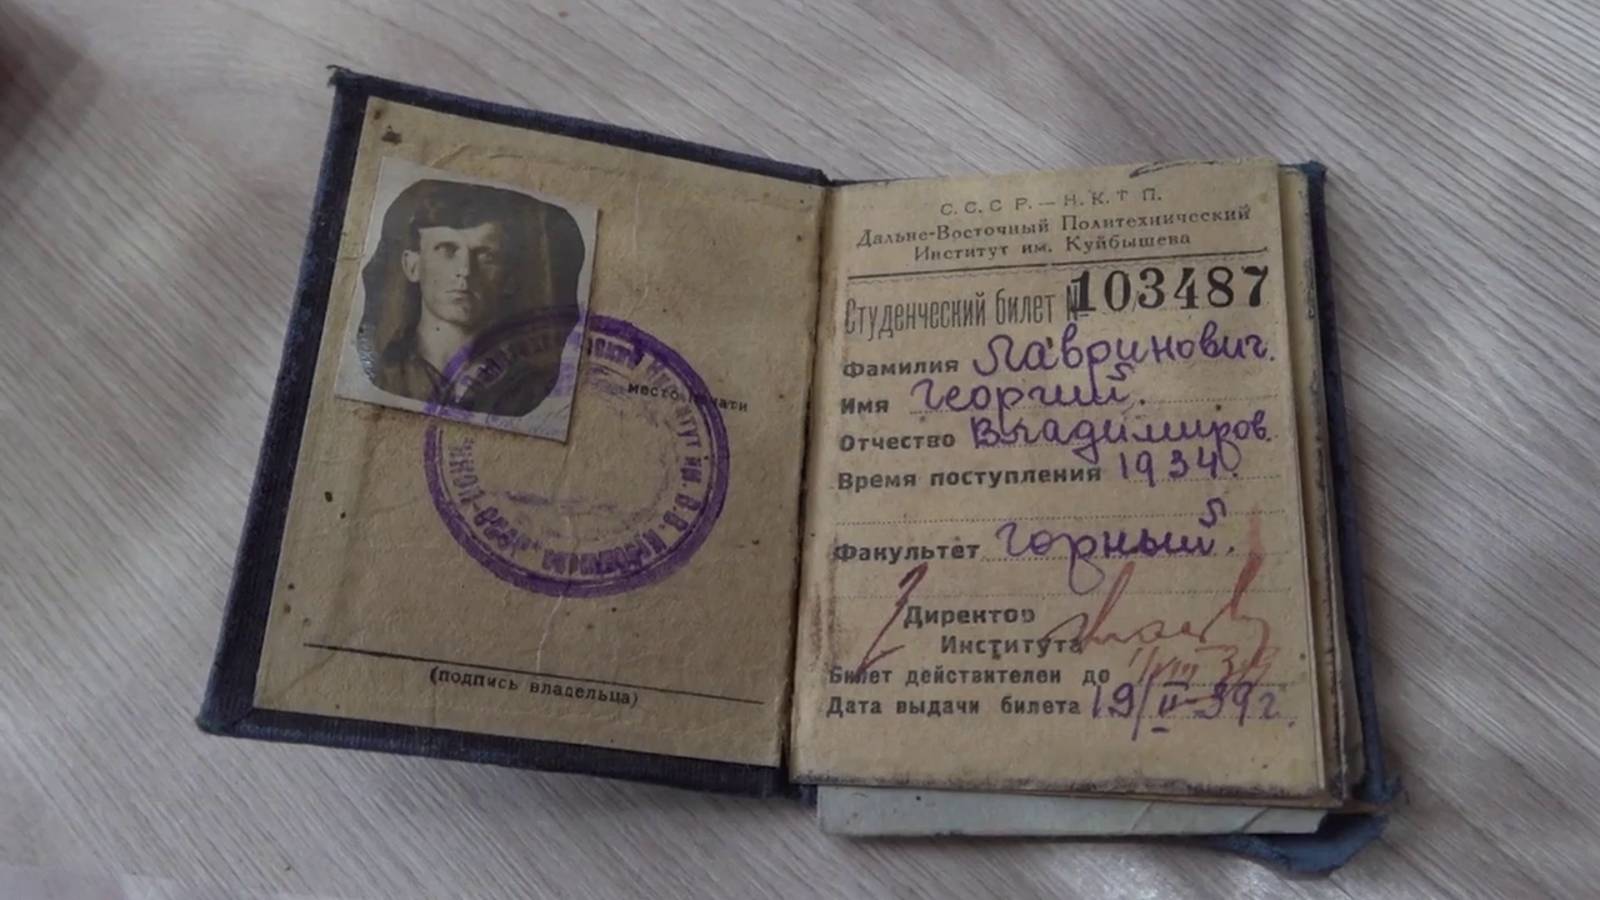 место печати
им. В. В. Куйбышева
(подпись владельца)
С. С. С Р. — Н. К. Т П.
Дальне-Восточный Политехнический
Институт им. Куйбышева
Студенческий билет № 103487
Фамилия Лавринович.
Имя Георгий.
Отчество Владимиров.
Время поступления 1934.
Факультет Горный.
Директор
Института
Билет действителен до
Дата выдачи билета 19/II-39г.